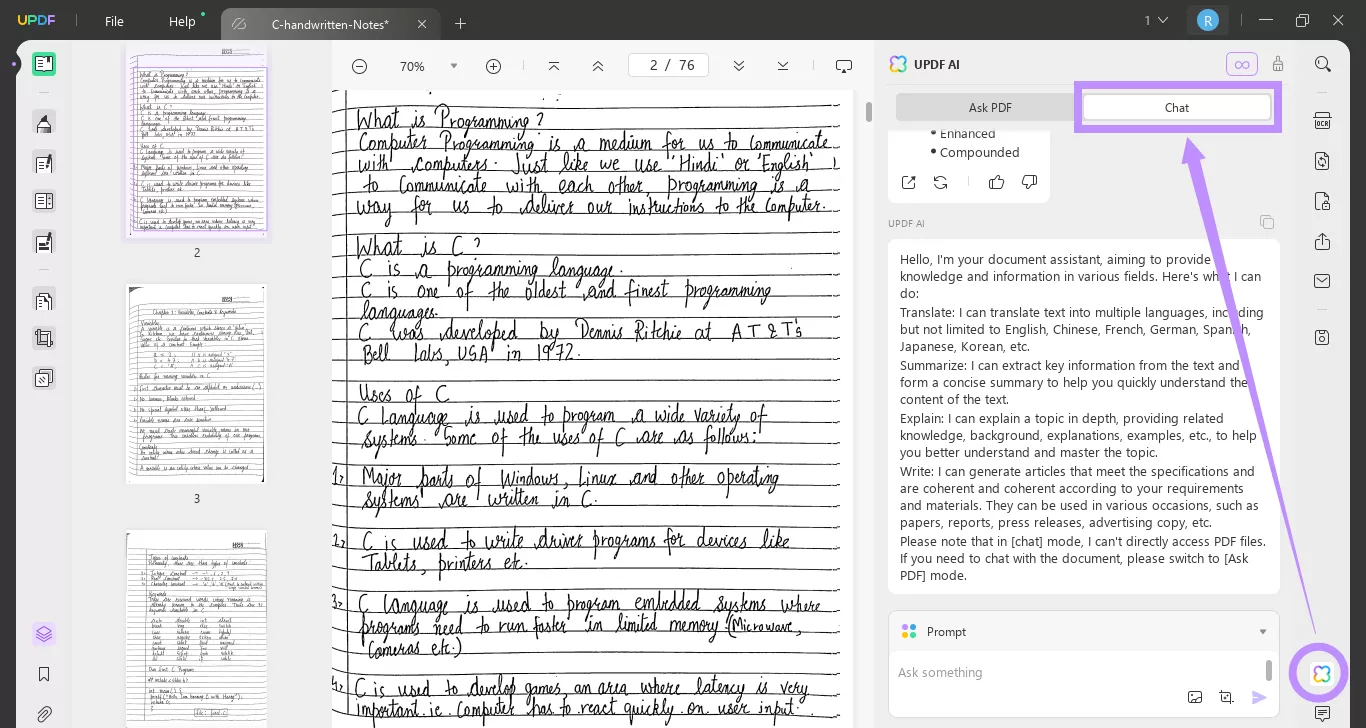 UPDF
File
Help
C-handwritten-Notes*
1
R
70%
2 / 76
What is Programming?
Computer Programming is a medium for us to Communicate
with Computers. Just like we use 'Hindi' or 'English'
to Communicate with each other, programming is a
way for us to deliver our instructions to the Computer.
What is C?
C is a programming language.
C is one of the oldest and finest programming
languages.
C was developed by Dennis Ritchie at AT&T's
Bell Labs, USA in 1972.
Uses of C
C Language is used to program a wide variety of
systems. Some of the uses of C are as follows:
1> Major parts of Windows, Linux and other operating
systems are written in C.
2> C is used to write driver programs for devices like
Tablets, printers etc.
3> C Language is used to program embedded systems where
programs need to run faster in limited memory (Microwave,
Cameras etc.)
4> C is used to develop games, an area where latency is very
important ie. Computer has to react quickly on user input.
2
3
UPDF AI
Ask PDF
Chat
• Enhanced
• Compounded
UPDF AI
Hello, I'm your document assistant, aiming to provide
knowledge and information in various fields. Here's what I can
do:
Translate: I can translate text into multiple languages, including
but not limited to English, Chinese, French, German, Spanish,
Japanese, Korean, etc.
Summarize: I can extract key information from the text and
form a concise summary to help you quickly understand the
content of the text.
Explain: I can explain a topic in depth, providing related
knowledge, background, explanations, examples, etc., to help
you better understand and master the topic.
Write: I can generate articles that meet the specifications and
are coherent and coherent according to your requirements
and materials. They can be used in various occasions, such as
papers, reports, press releases, advertising copy, etc.
Please note that in [chat] mode, I can't directly access PDF files.
If you need to chat with the document, please switch to [Ask
PDF] mode.
Prompt
Ask something
OCR